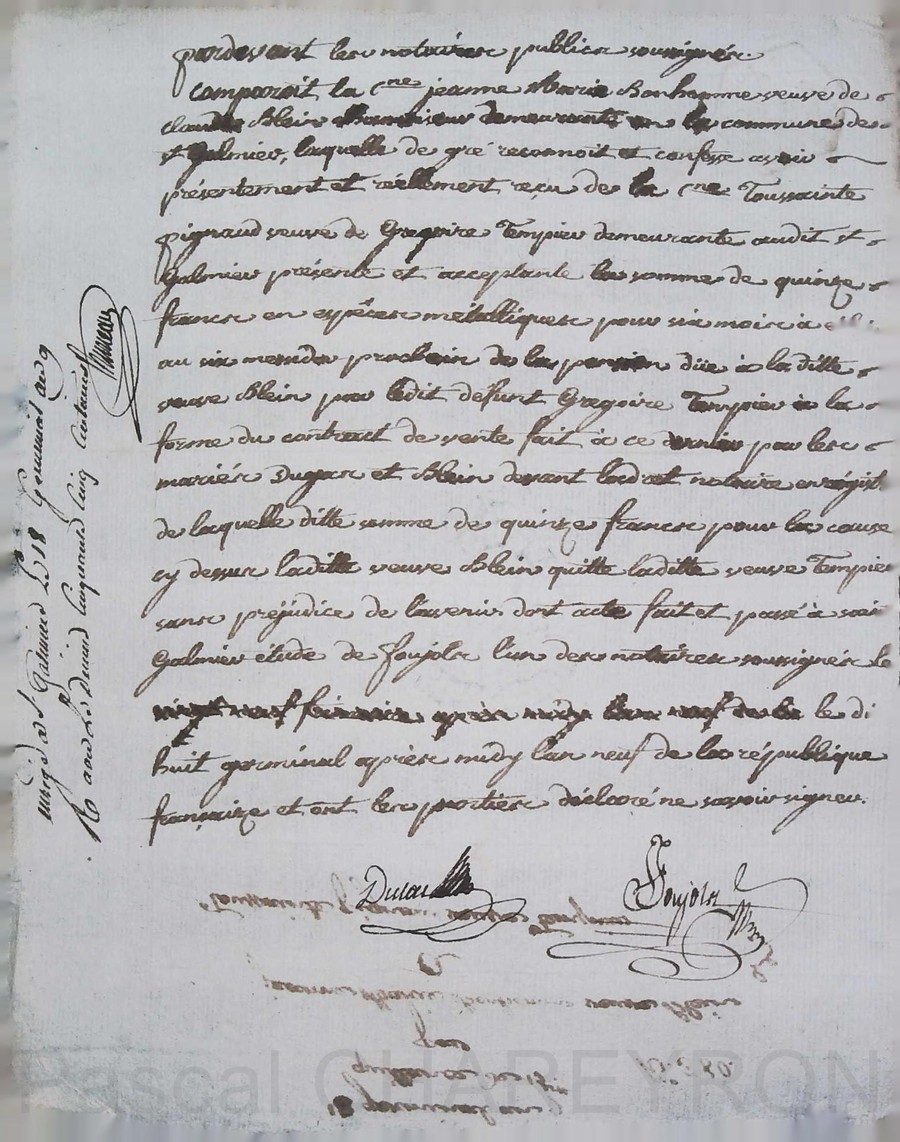 pardevant les notaires publics soussignés
comparoit la Cne jeanne Marie Bonhomme veuve de
claude Blein demeurante en la commune de
st Galmier, laquelle de gré reconnoit et confesse avoir
présentement et réellement reçu de la Cne Toussainte
pignaud veuve de Gregoire Tempier demeurante audit st
Galmier présente et acceptante la somme de quinze
francs en espèces métalliques pour six mois à
au six messidor prochain de la pension düe à la ditte
veuve Blein par ledit defunt Gregoire Tempier à la
forme du contract de vente fait à ce dernier par les
mariés Dugas et Blein devant ledit notaire enregist.
de laquelle ditte somme de quinze francs pour la cause
cy dessus laditte veuve Blein quitte laditte veuve Tempier
sans préjudice de l'avenir. dont acte fait et passé à
Galmier étude de foujols l'un des notaires soussignés le
vingt neuf après midy l'an neuf de la le di
huit germinal après midy l'an neuf de la république
françaize et ont les parties déclaré ne savoir signer.
Foujols
enrgé à st Galmier le 18 Germinal an 9
cinquante cinq centimes
veuve Blein
quittance de 15
18 germinal an
Pascal CHAREYRON